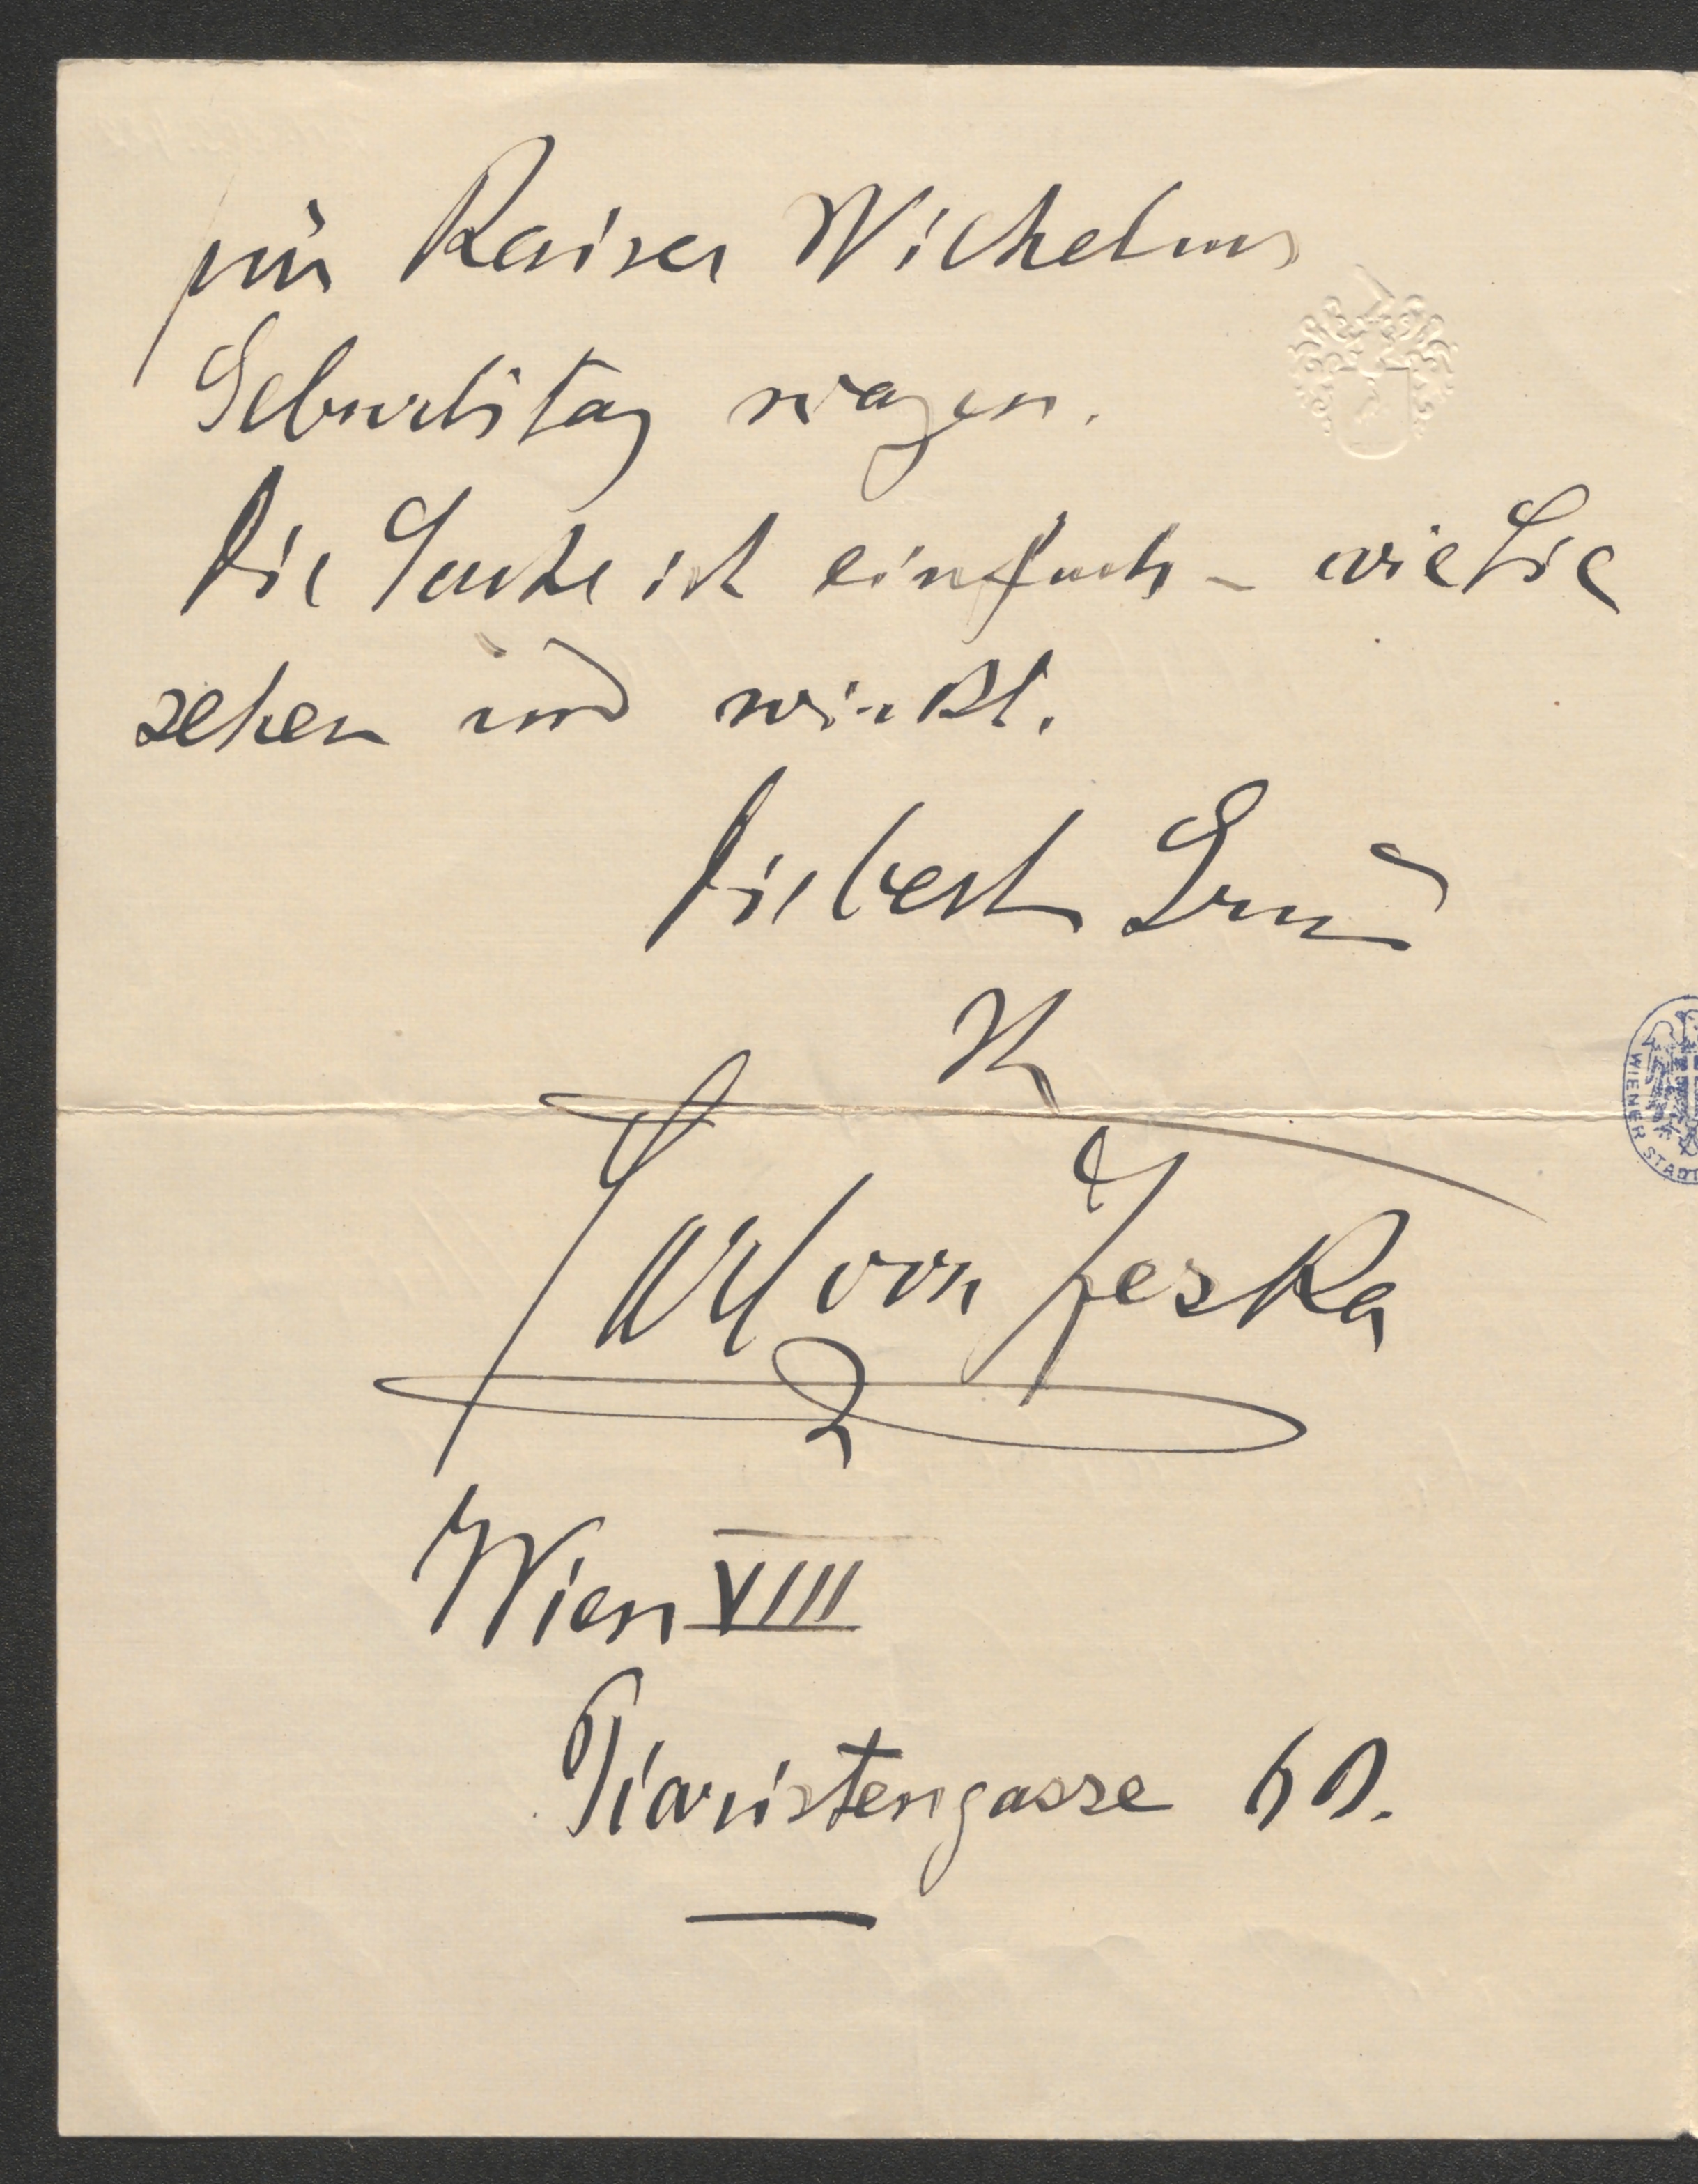 für Kaiser Wilhelms
Geburtstag wagen.
Die Sache ist einfach – wie Sie
sehen und wirkt.
Die besten Grüße
Ihr
Carl von Zeska
Wien VIII
Piaristengasse
WIENER STADT